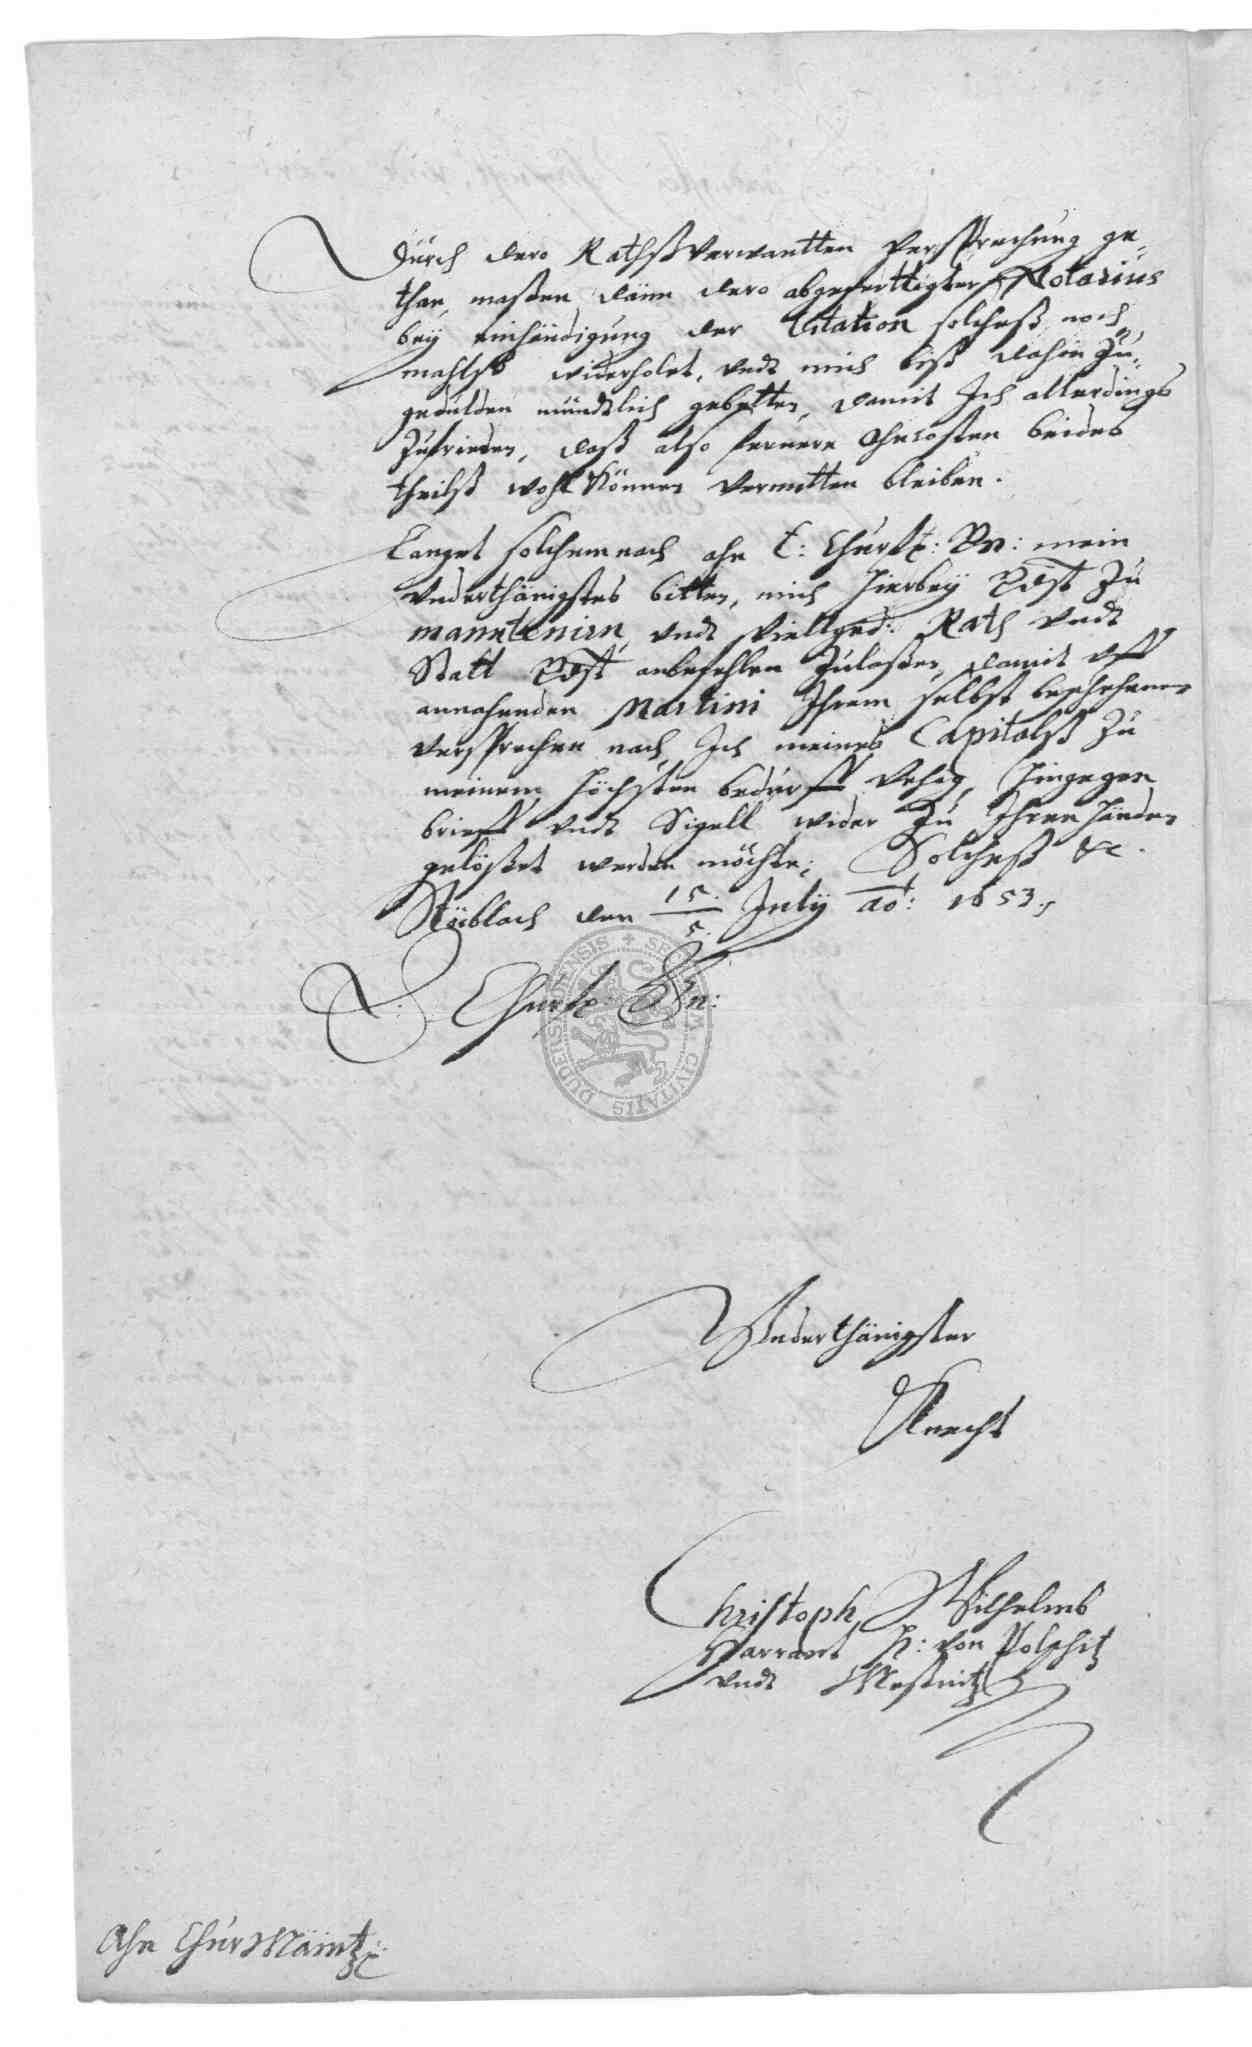 durch dero Rathsverwantten versprechung ge-
than, maßen dann dero abgefertigter Notarius
bey einhändigung der Citation solcheß noch
mahlß widerholet, vndt mich biß dahin zu
gedulden mündtlich gebetten, damit Ich allerdings
zufrieden, daß also fernere Vncosten beides
theilß wohl können vermitten bleiben.
Langet solchem nach ahn E: Churf: Gn: mein
vnderthänigstes bitten, mich hierbey zu
manutenirn, vndt vielged: Rath vndt
Statt anbefehlen zulaßen, damit vff
annahenden Martini Ihrem selbst beschehenen
versprechen nach, Ich meines Capitalß zu
meinem höchsten bedürff vehig, hingegen
brieff vndt Sigell wider zu Ihren händen
gelößet werden möchte, Solcheß &c.
den 15./5. July ao: 1653.
E: Churf: Gn:
SECRETUM CIVITATIS DUDERSTADENSIS
Vnderthänigster
Knecht
Christoph Wilhelmb
Harrant H: von Polschitz
vndt Weseritz
Ahn Chur Maintz